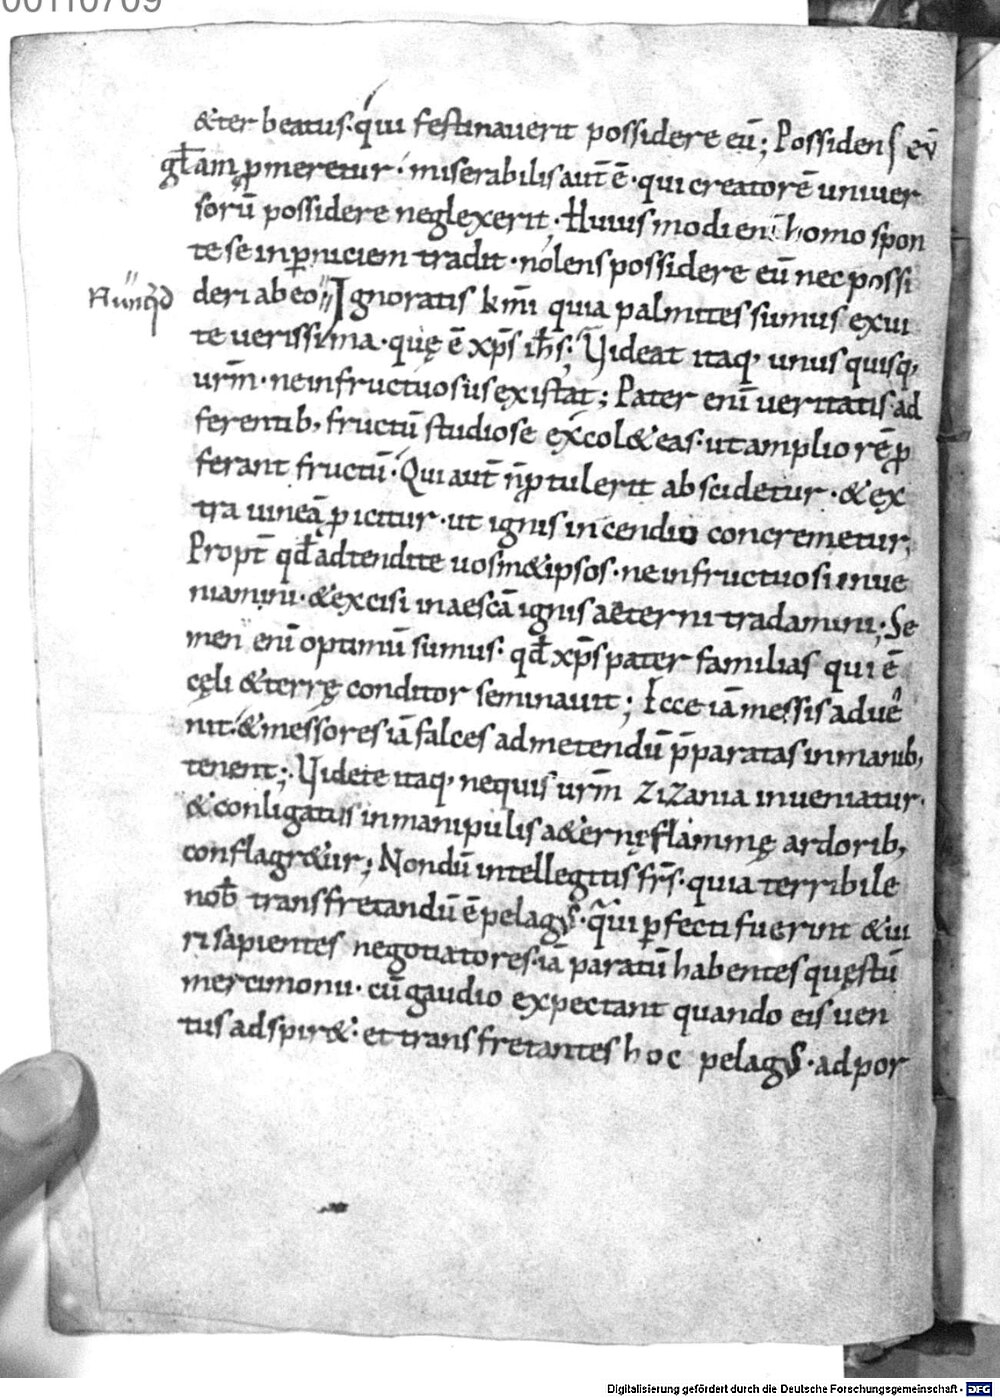 00110709
&ter beatus· qui festinauerit possidere eū; Possidens eū
gl̄am ꝓmeretur· miserabilis aut̄ ē· qui creatorē uniuer
sorū possidere neglexerit· Huius modi eni homo spon
te se in ꝑniciem tradit· nolens possidere eū nec possi
Nunqd
deri ab eo Ignoratis km̄i quia palmites sumus ex ui
te uerissima· quę ē xp̄s ih̄s; Uideat itaq, unus quisq,
urm̄· ne infructuosus existat; Pater enī ueritatis ad
ferentib, fructū studiose excol& eas· ut ampliorē ꝓ
ferant fructū· Qui aut̄ n̄ ꝓtulerit abscidetur· & ex
tra uineā ꝓicitur· ut ignis incendio concremetur;
Propt̄ qd̄ adtendite uosm& ipsos· ne infructuosi inue
niamini· & excisi in aescā ignis aeterni tradamini; Se
men enī optimū sumus· qd̄ xp̄s pater familias qui ē
cęli & terrę conditor seminauit; Ecce iā messis adue
nit· & messores iā falces ad metendū p̄paratas in manib,
tenent; Uidete itaq, nequis urm̄ zizania inueniatur·
& conligatus in manipulis a&ernę flammę ardorib,
conflagr&ur; Nondū intellegitis frs̄· quia terribile
nob̄ transfretandū ē pelagus· qui ꝑfecti fuerint & ui
ri sapientes negotiatores· iā paratū habentes quęstū
mercimonii· cū gaudio expectant quando eis uen
tus adspir&· et transfretantes hoc pelagus· ad por
Digitalisierung gefördert durch die Deutsche Forschungsgemeinschaft - DFG